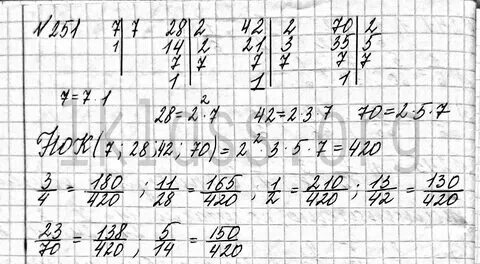 №251 7 | 7 28 | 2 42 | 2 70 | 2
1 | 14 | 2 21 | 3 35 | 5
7 | 7 7 | 7 7 | 7
1 | 1 | 1 |
7=7·1
28=2²·7 42=2·3·7 70=2·5·7
НОК(7; 28; 42, 70)=2²·3·5·7=420
3/4 = 180/420; 11/28 = 165/420; 1/2 = 210/420; 13/42 = 130/420
23/70 = 138/420, 5/14 = 150/420